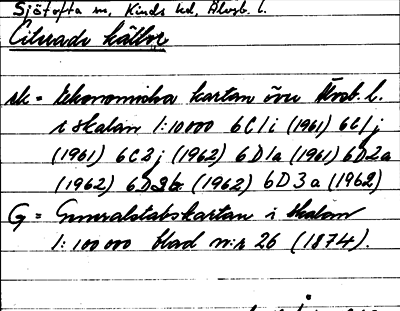 Sjötofta sn, Kinds hd, Älvsb. l.
Citerade källor
ek = Ekonomiska kartan över Älvsb. l.
i skalan 1:10000 6C1i (1961) 6C1j
(1961) 6C2j (1962) 6D1a (1961) 6D2a
(1962) 6D2b (1962) 6D3a (1962)
G = Generalstabskartan i skalan
1:100000 blad n:r 26 (1874).